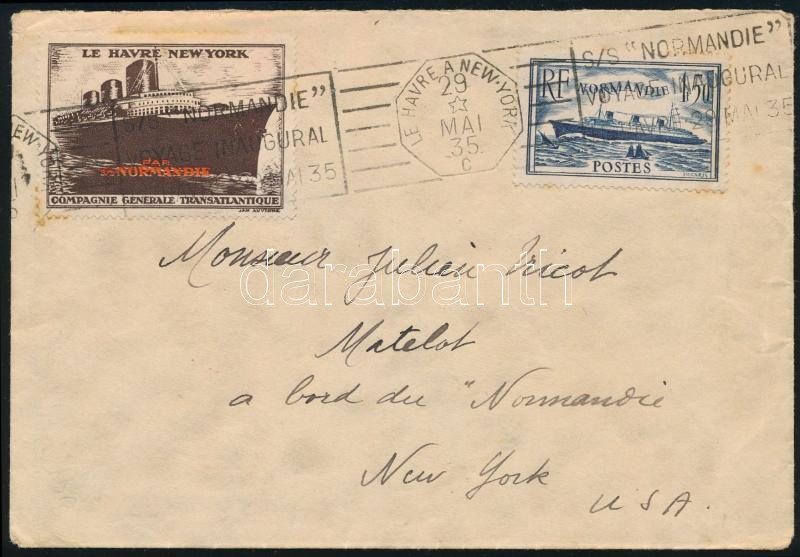 LE HAVRE-NEW YORK
PAR
S/S NORMANDIE
COMPAGNIE GENERALE TRANSATLANTIQUE
JAN AUVIGNE
S/S "NORMANDIE"
VOYAGE INAUGURAL
MAI 35
LE HAVRE A NEW-YORK
29
MAI
35
C
S/S "NORMANDIE"
VOYAGE INAUGURAL
29 MAI 35
RF NORMANDIE 1f50
POSTES
DECARIS
Monsieur Julien Tricot
darabanth
Matelot
a bord du "Normandie
New York
U.S.A.